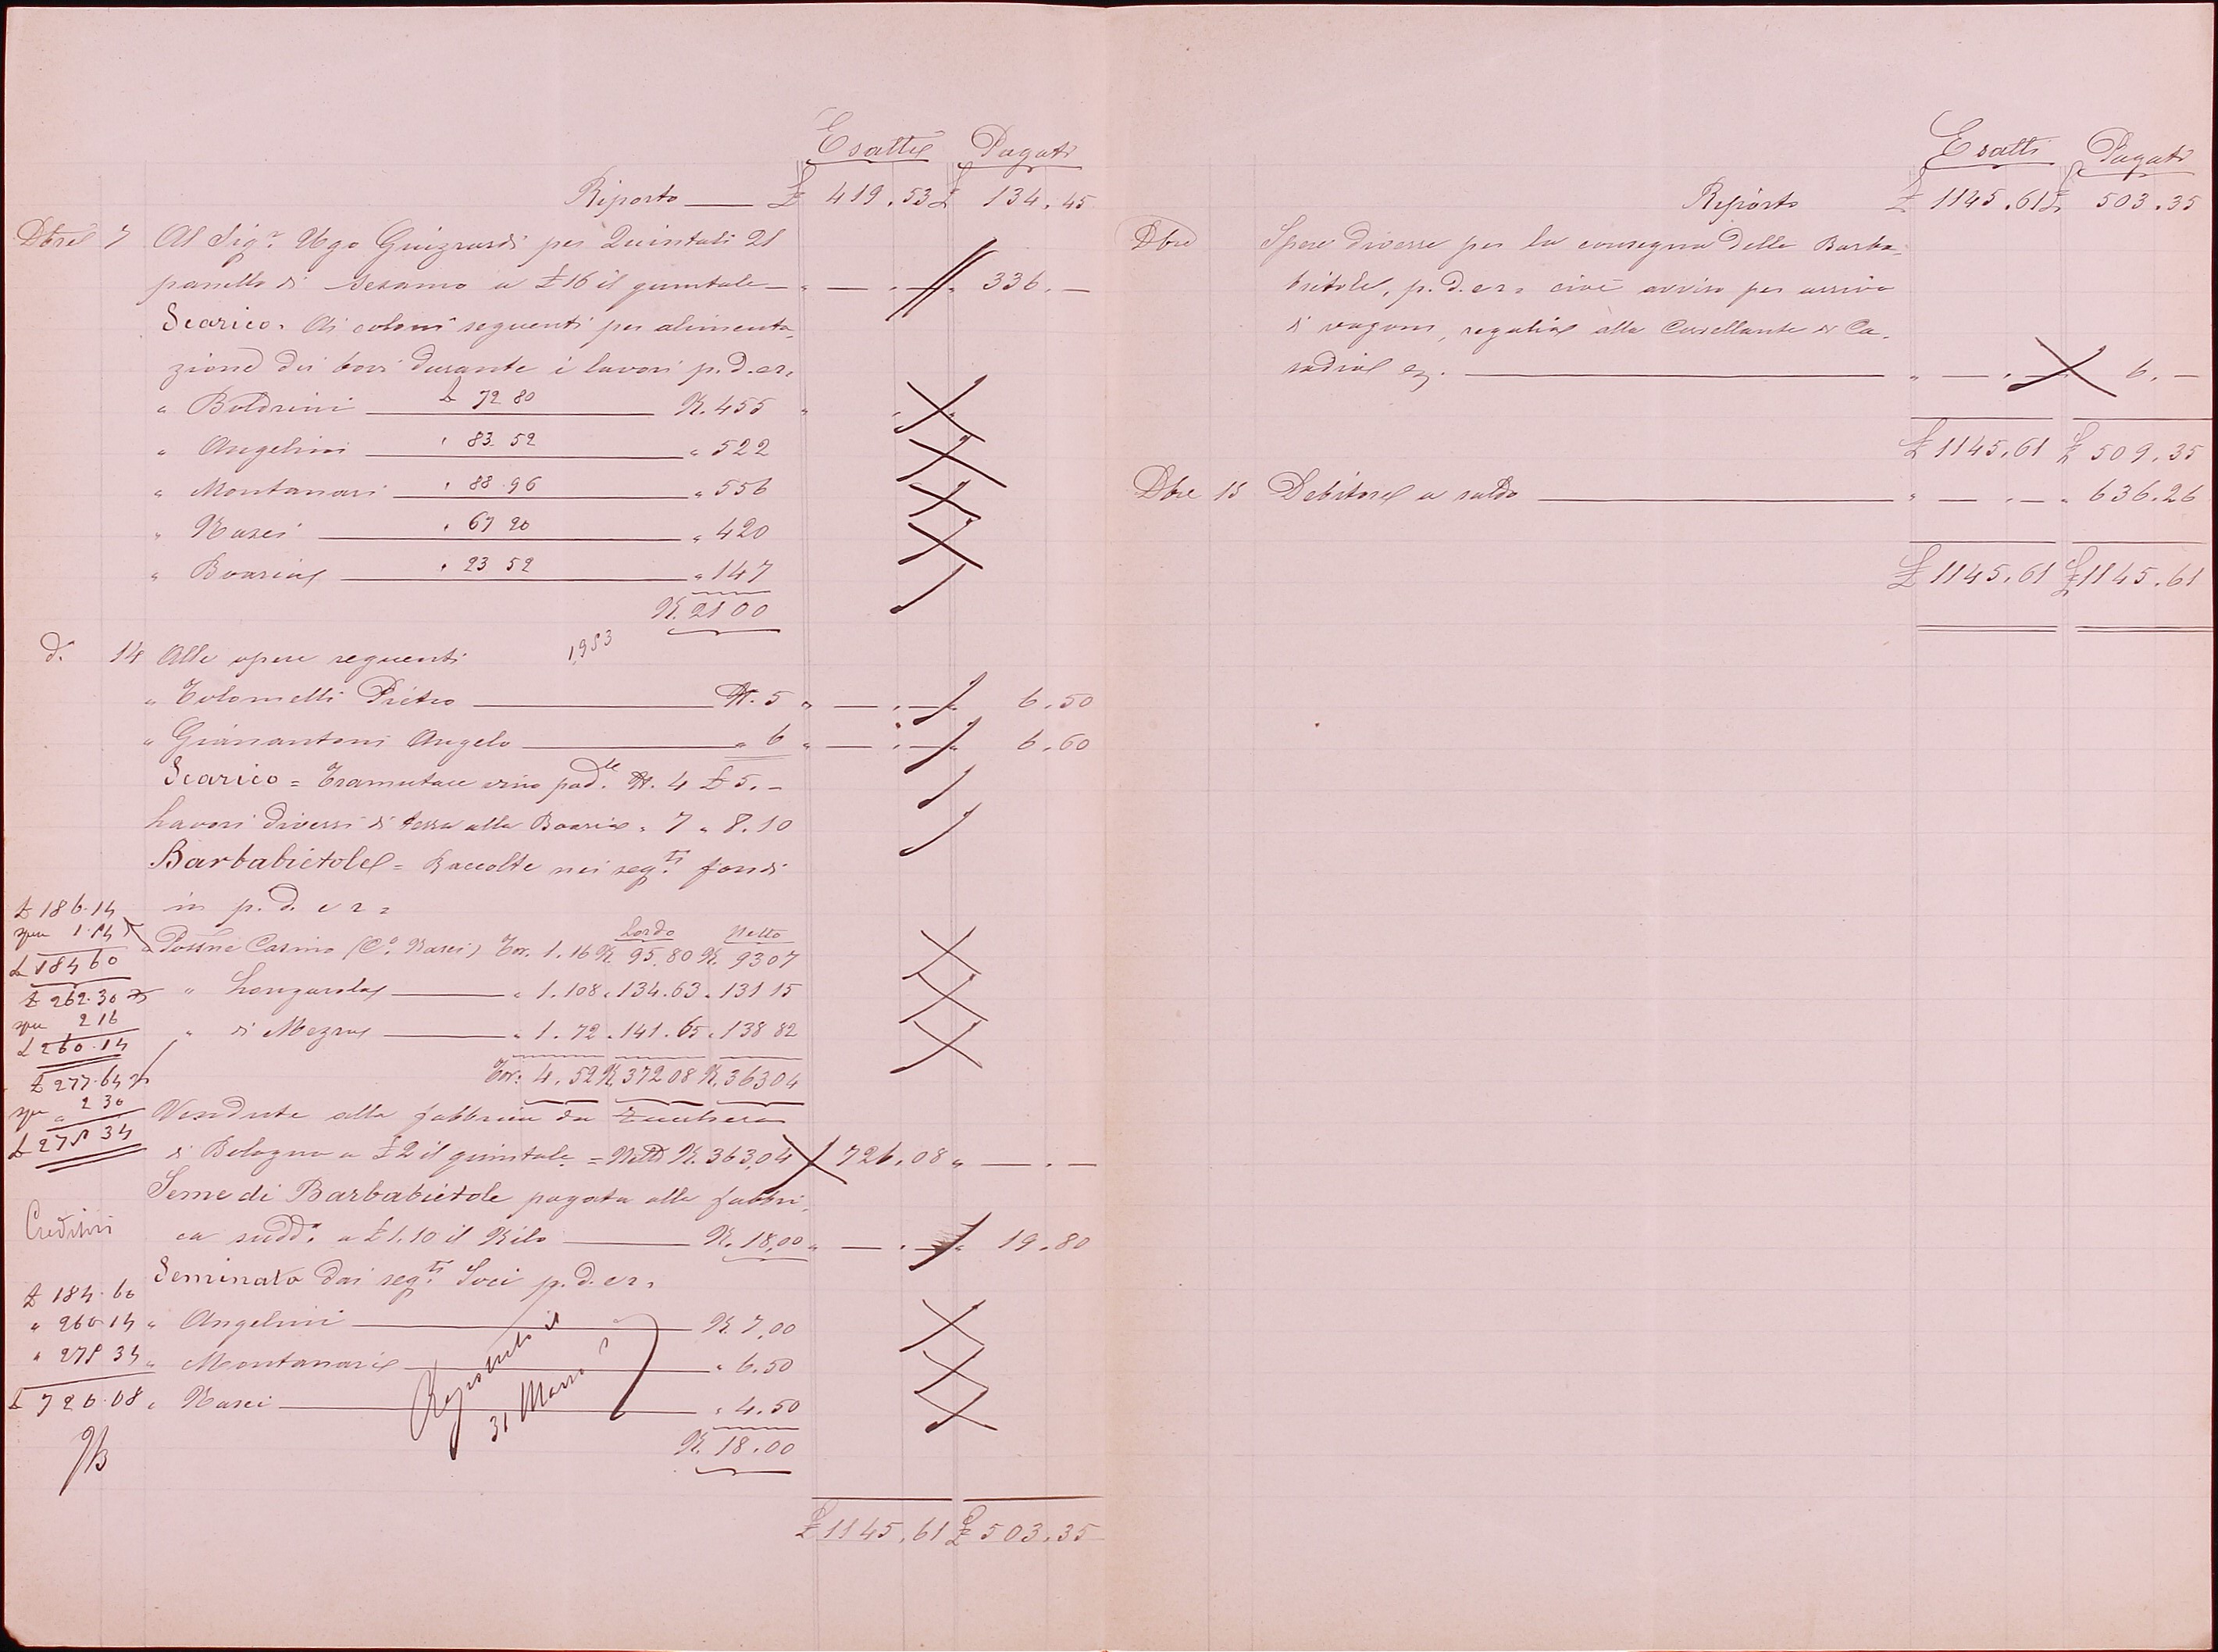 Esatti Pagati
Riporto £ 419.53 £ 134.45
Dbre 7 Al Sigr. Ugo Guizzardi per Quintali 21
panello di Sesamo a £ 16 il quintale " — . — " 336. —
Scarico. Ai coloni seguenti per alimenta-
zione dei bovi durante i lavori p.d.er.
" Boldrini £ 72 80 K. 455 "
" Angelini " 83 52 " 522
" Montanari " 88.96 " 556
" Nasci " 67 20 " 420
" Boaria " 23 52 " 147
K. 2100
d. 14 Alle opere seguenti 1,953
" Tolomelli Pietro N. 5 " — . — " 6.50
" Gianantoni Angelo " 6 " — . — " 6.60
Scarico = Tramutare vino pad.le N. 4 £ 5. –
Lavori diversi di terra alla Boaria " 7 " 8.10
Barbabietole = Raccolte nei seg.ti fondi
in p. d. e r =
Lordo Netto
Possne Casino (Co. Nasci) Tor. 1.16 K. 95.80 K. 93 07
" Longarola " 1.108 " 134.63 " 131 15
" di Mezzo " 1. 72 " 141.65 " 138 82
Tor. 4. 52 K. 372 08 K. 363 04
Vendute alla fabbrica da Zucchero
di Bologna a £ 2 il quintale = Netto K. 363,04 726.08 " — . —
Seme di Barbabietole pagata alla fabbri-
ca sudd.a a £ 1.10 il Kilo K. 18,00 " — . — " 19.80
Seminato dai seg.ti Soci p.d.er.
" Angelini K. 7,00
" Montanari " 6.50
" Nasci " 4.50
K. 18.00
£ 1145.61 £ 503.35
£ 186.14
spese 1.54
£ 184 60
£ 262.30
spese 2 16
£ 260.14
£ 277.64
spese " 2 30
£ 275 34
Creditori
£ 184.60
" 260 14
" 275 34
£ 720.08
31 Marzo
Esatti Pagati
Riporto £ 1145.61 £ 503.35
Dbre Spese diverse per la consegna delle Barba-
bietole, p.d.er. cioè avviso per arrivo
di vagoni, regalia alla Casellante di Ca-
sadio ez. " — . — 6. —
£ 1145.61 £ 509.35
Dbre 15 Debitore a saldo " — . — " 636.26
£ 1145.61 £ 1145.61